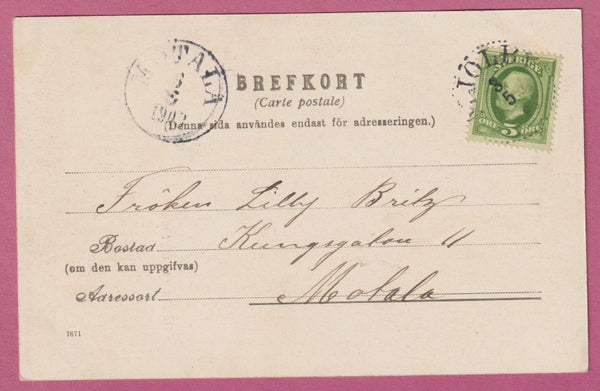 MOTALA
1902
BREFKORT
(Carte postale)
(Denna sida användes endast för adresseringen.)
SVERIGE
ÖRE 5 ÖRE
Fröken Lilly Britz
Bostad Kungsgatan 11
(om den kan uppgifvas)
Adressort Motala
7671